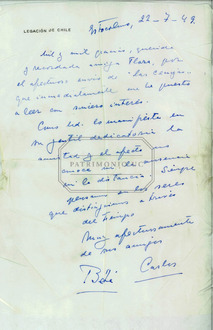 LEGACION DE CHILE
Estocolmo, 22-7-49.
Mil y mil gracias, querida
y recordada amiga Flora, por
el afectuoso envío de "las
que inmediatamente me he puesto
a leer con sumo interés.
Como Ud. lo manifiesta en
su gentil dedicatoria la
amistad y el afecto no
conoce
en la distancia. Siempre
pensamos en los seres
que distinguimos a través
del tiempo
PATRIMONIO
Muy afectuosamente
de sus amigos
Bebé Carlos